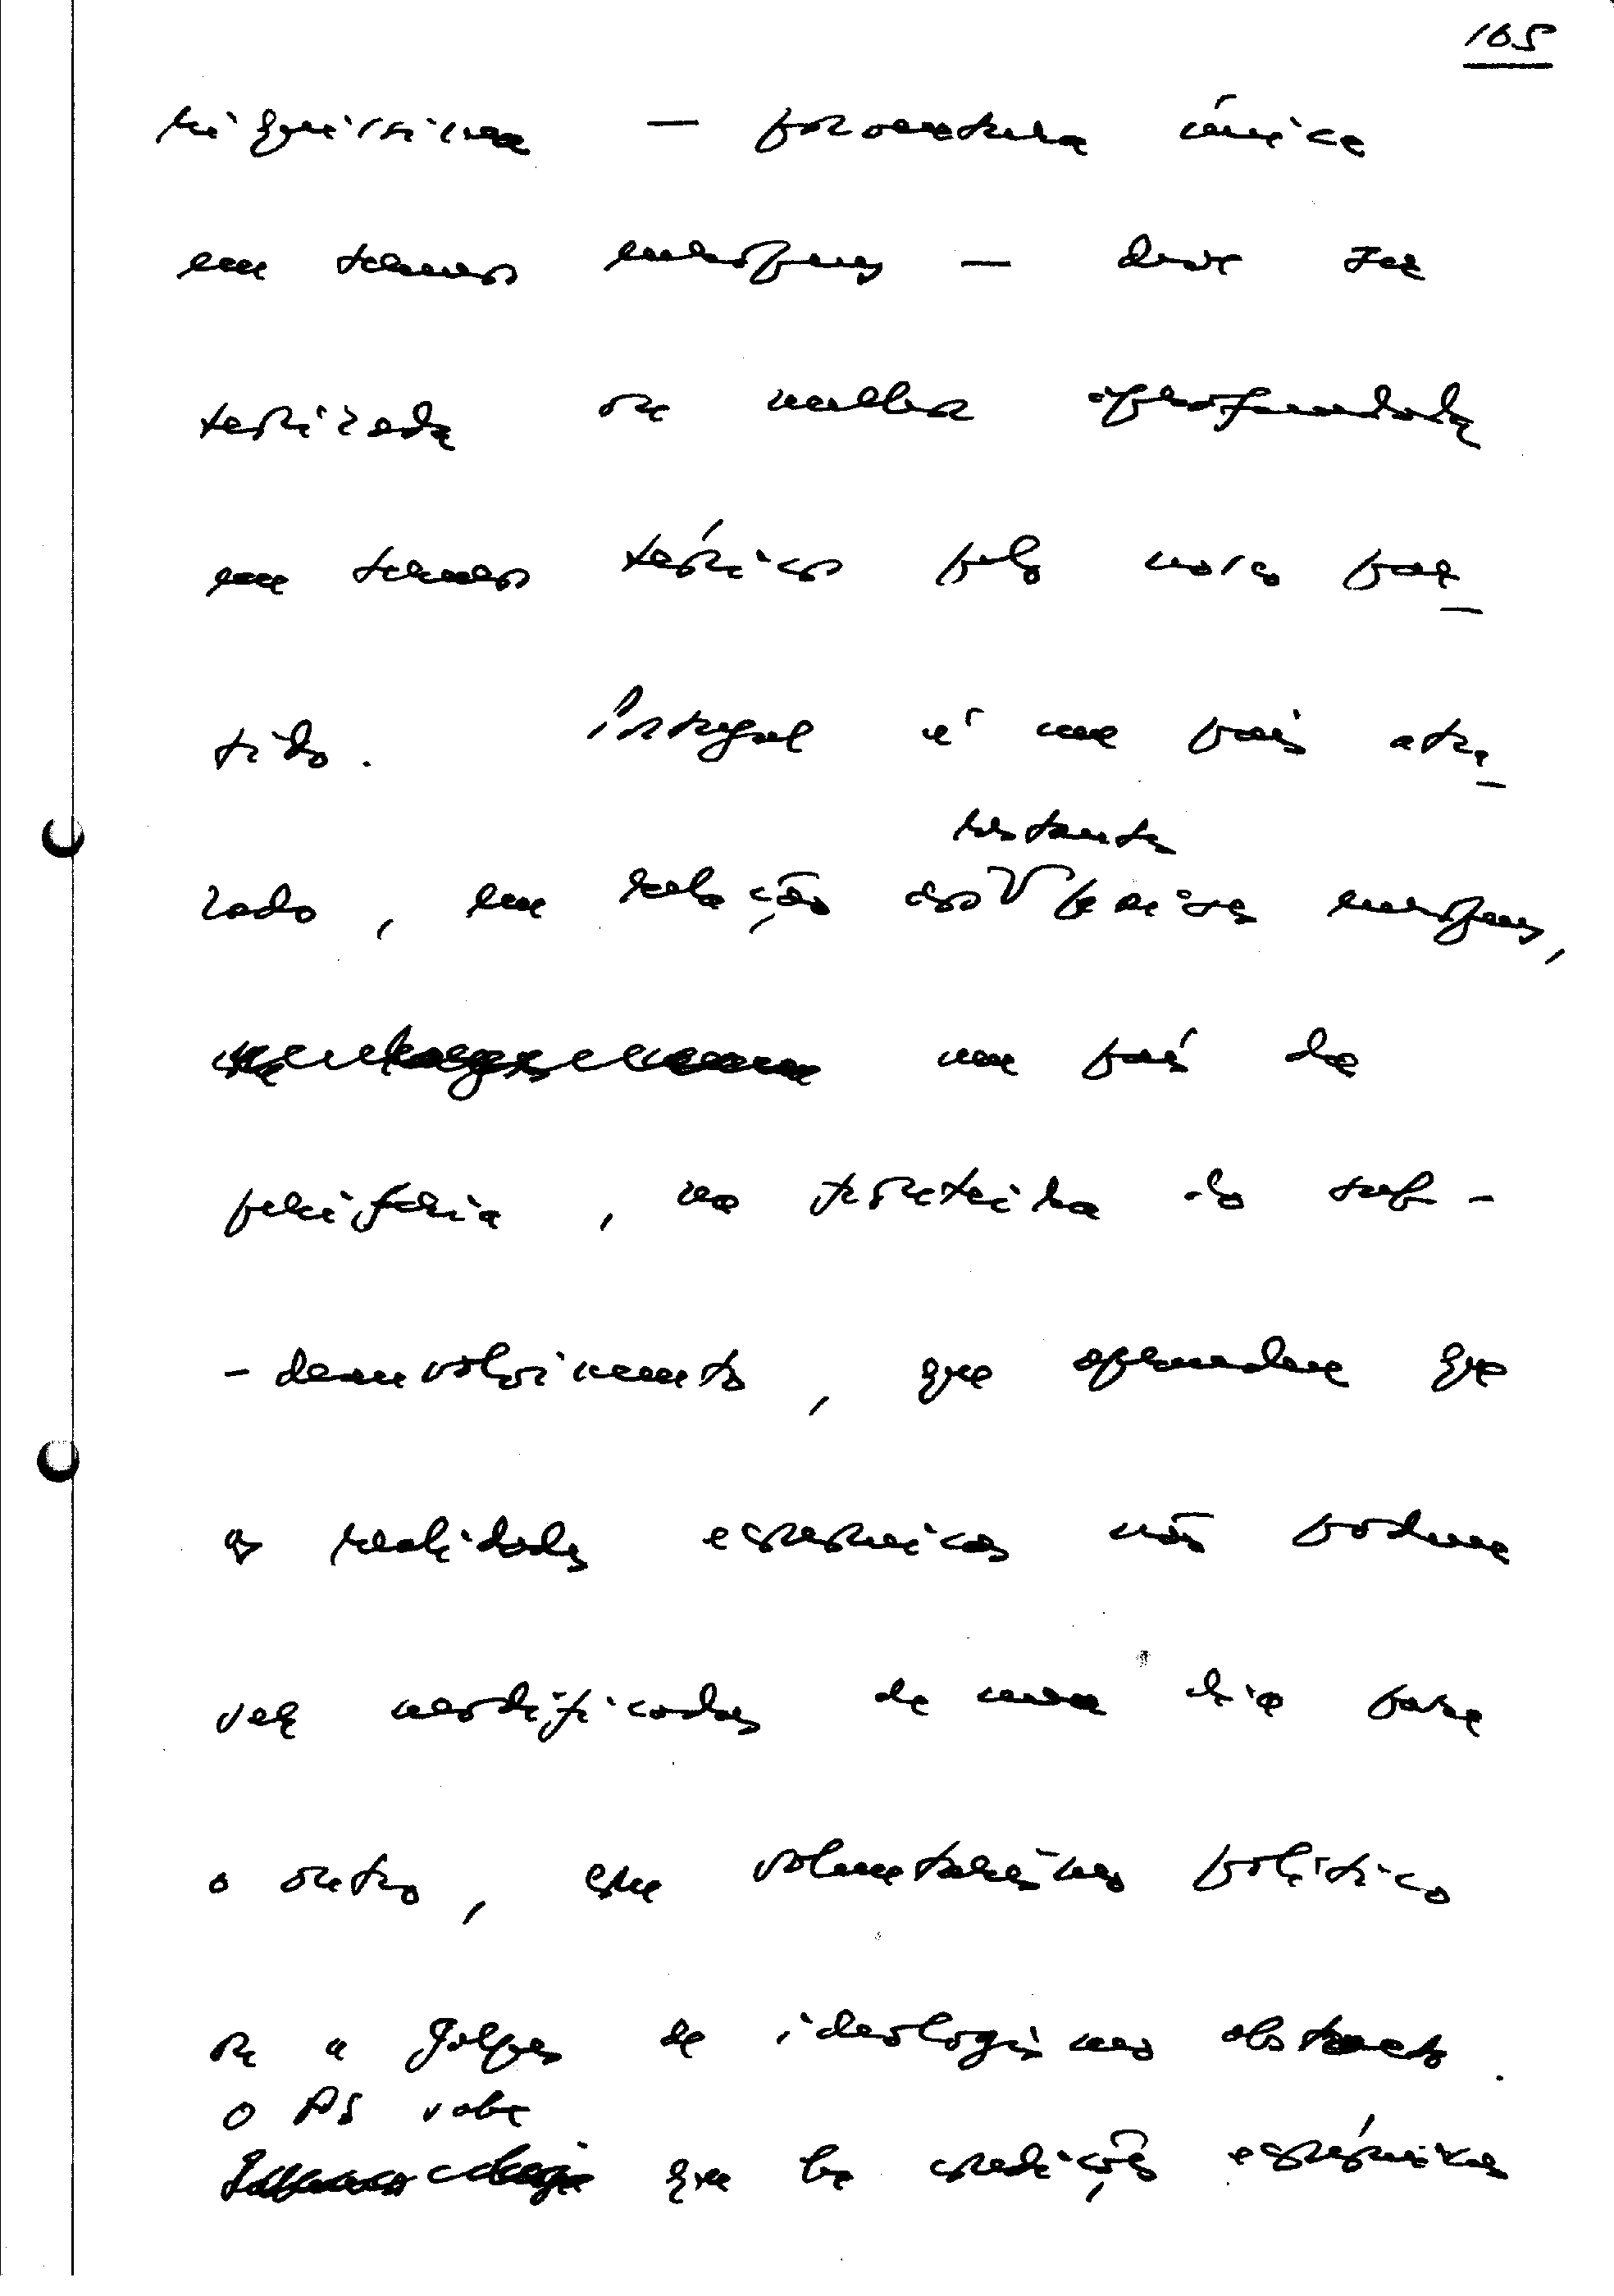 165
riquíssima — porventura única
em termos europeus — deve ser
teorizada ou melhor aprofundada
em termos teóricos pelo nosso par_
tido. Portugal é um país atra_
restantes
zado, em relação aos países europeus,
um país da
periferia, na fronteira do sub-
-desenvolvimento, que aprendeu que
as realidades económicas não podem
ser modificadas de um dia para
o outro, com voluntarismo político
ou a golpes de ideologismo abstracto.
O PS sabe
que há condições económicas